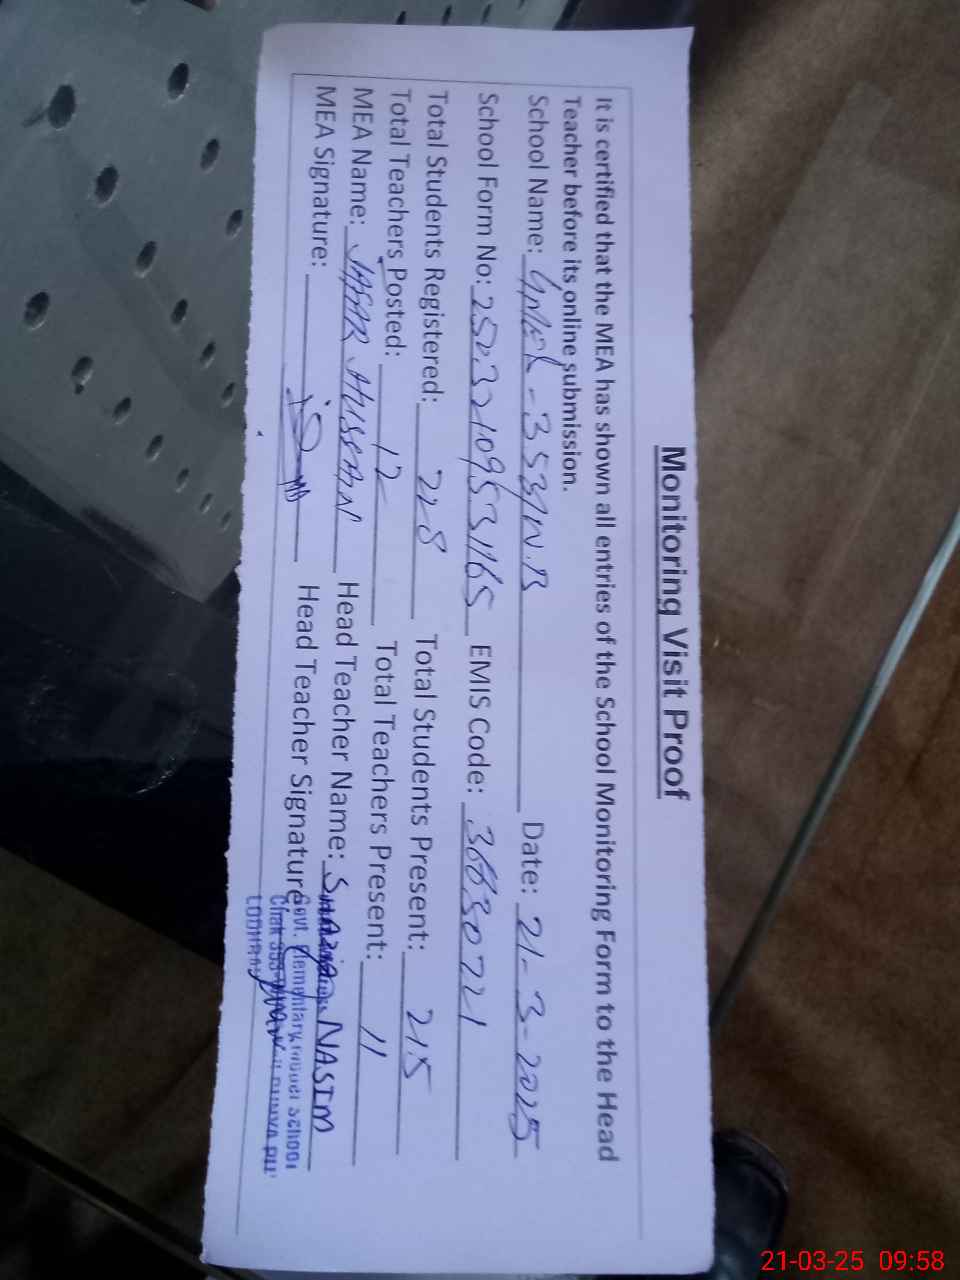 Monitoring Visit Proof
It is certified that the MEA has shown all entries of the School Monitoring Form to the Head
Teacher before its online submission.
School Name: GMES-353/W.B Date: 21-3-2025
School Form No: 25032109531165 EMIS Code: 36330221
Total Students Registered: 228 Total Students Present: 215
Total Teachers Posted: 12 Total Teachers Present: 11
MEA Name: JAFAR HUSSAIN Head Teacher Name: NASIM
MEA Signature: Head Teacher Signature
Govt. Elementary School
Chak 353
LODHRAN
21-03-25 09:58